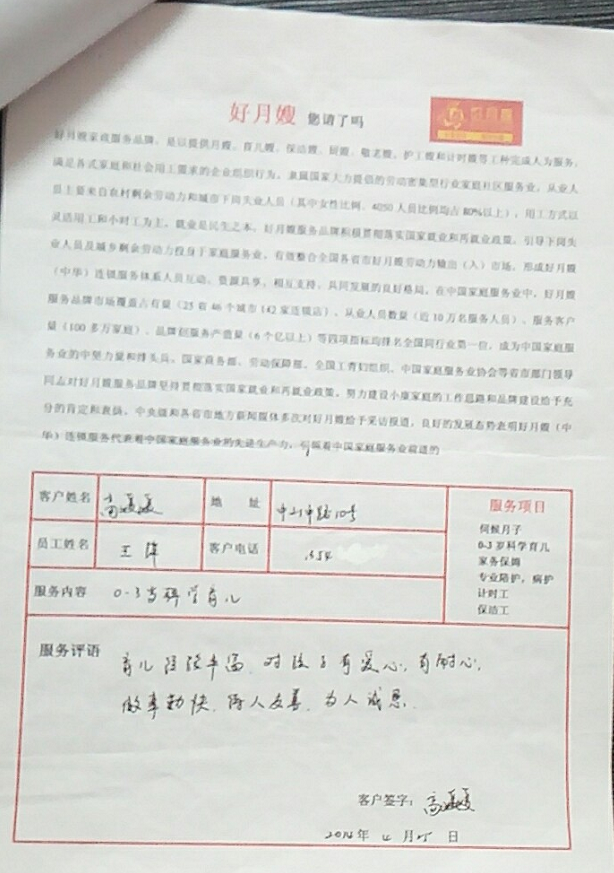 好月嫂 您请了吗
好月嫂家政服务品牌，是以提供月嫂、育儿嫂、保洁嫂、厨嫂、敬老嫂、护工嫂和计时嫂等工种完成人为服务，
满足各式家庭和社会用工需求的企业组织行为，隶属国家大力提倡的劳动密集型行业家庭社区服务业，从业人
员主要来自农村剩余劳动力和城市下岗失业人员（其中女性比例、4050人员比例均占80%以上），用工方式以
灵活用工和小时工为主。就业是民生之本，好月嫂服务品牌积极贯彻落实国家就业和再就业政策，引导下岗失
业人员及城乡剩余劳动力投身于家庭服务业，有效整合全国各省市好月嫂劳动力输出（入）市场，形成好月嫂
（中华）连锁服务体系人员互动、资源共享、相互支持、共同发展的良好格局。在中国家庭服务业中，好月嫂
服务品牌市场覆盖占有量（25省46个城市142家连锁店）、从业人员数量（近10万名服务人员）、服务客户
量（100多万家庭）、品牌创服务产值量（6个亿以上）等四项指标均排名全国同行业第一位，成为中国家庭服
务业的中坚力量和排头兵。国家商务部、劳动保障部、全国工青妇组织、中国家庭服务业协会等省市部门领导
同志对好月嫂服务品牌坚持贯彻落实国家就业和再就业政策，努力建设小康家庭的工作思路和品牌建设给予充
分的肯定和表扬，中央级和各省市地方新闻媒体多次对好月嫂给予采访报道，良好的发展态势表明好月嫂（中
华）连锁服务代表着中国家庭服务业的先进生产力，引领着中国家庭服务业前进的
客户姓名 高媛媛 地 址 中山中路10号
员工姓名 王萍 客户电话 354
服务项目
伺候月子
0-3岁科学育儿
家务保姆
专业陪护，病护
计时工
保洁工
服务内容 0-3岁科学育儿
服务评语 育儿经验丰富，对孩子有爱心，有耐心，
做事勤快，待人友善，为人诚恳
客户签字：高媛媛
2014年 4 月 15 日